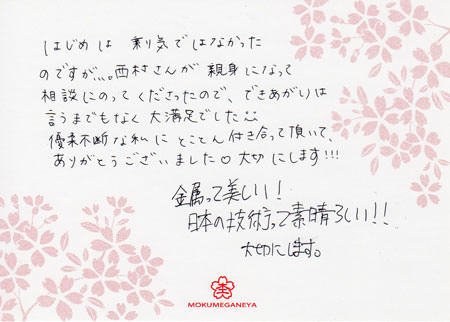 はじめは 乗り気ではなかった
のですが、、。西村さんが 親身になって
相談にのってくださったので、できあがりは
言うまでもなく 大満足でした
優柔不断な私に とことん付き合って頂いて、
ありがとうございました♡ 大切にします!!!
金属って美しい!
日本の技術って素晴らしい!!
大切にします。
MOKUMEGANEYA